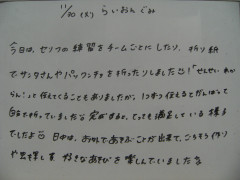 11/30(火) らいおん ぐみ
今日は、セリフの練習をチームごとにしたり、折り紙
でサンタさんやパックンチョを折ったりしました😊!「せんせい、わか
らん!」と伝えてくることもありましたが、1つずつ伝えるとがんばって
自分で折っていました😊 完成すると、とっても満足している様子
でしたよ😊 日中は、おやまであそぶことが出来て、ごちそう作り
や虫探し等 好きなあそびを楽しんでいました